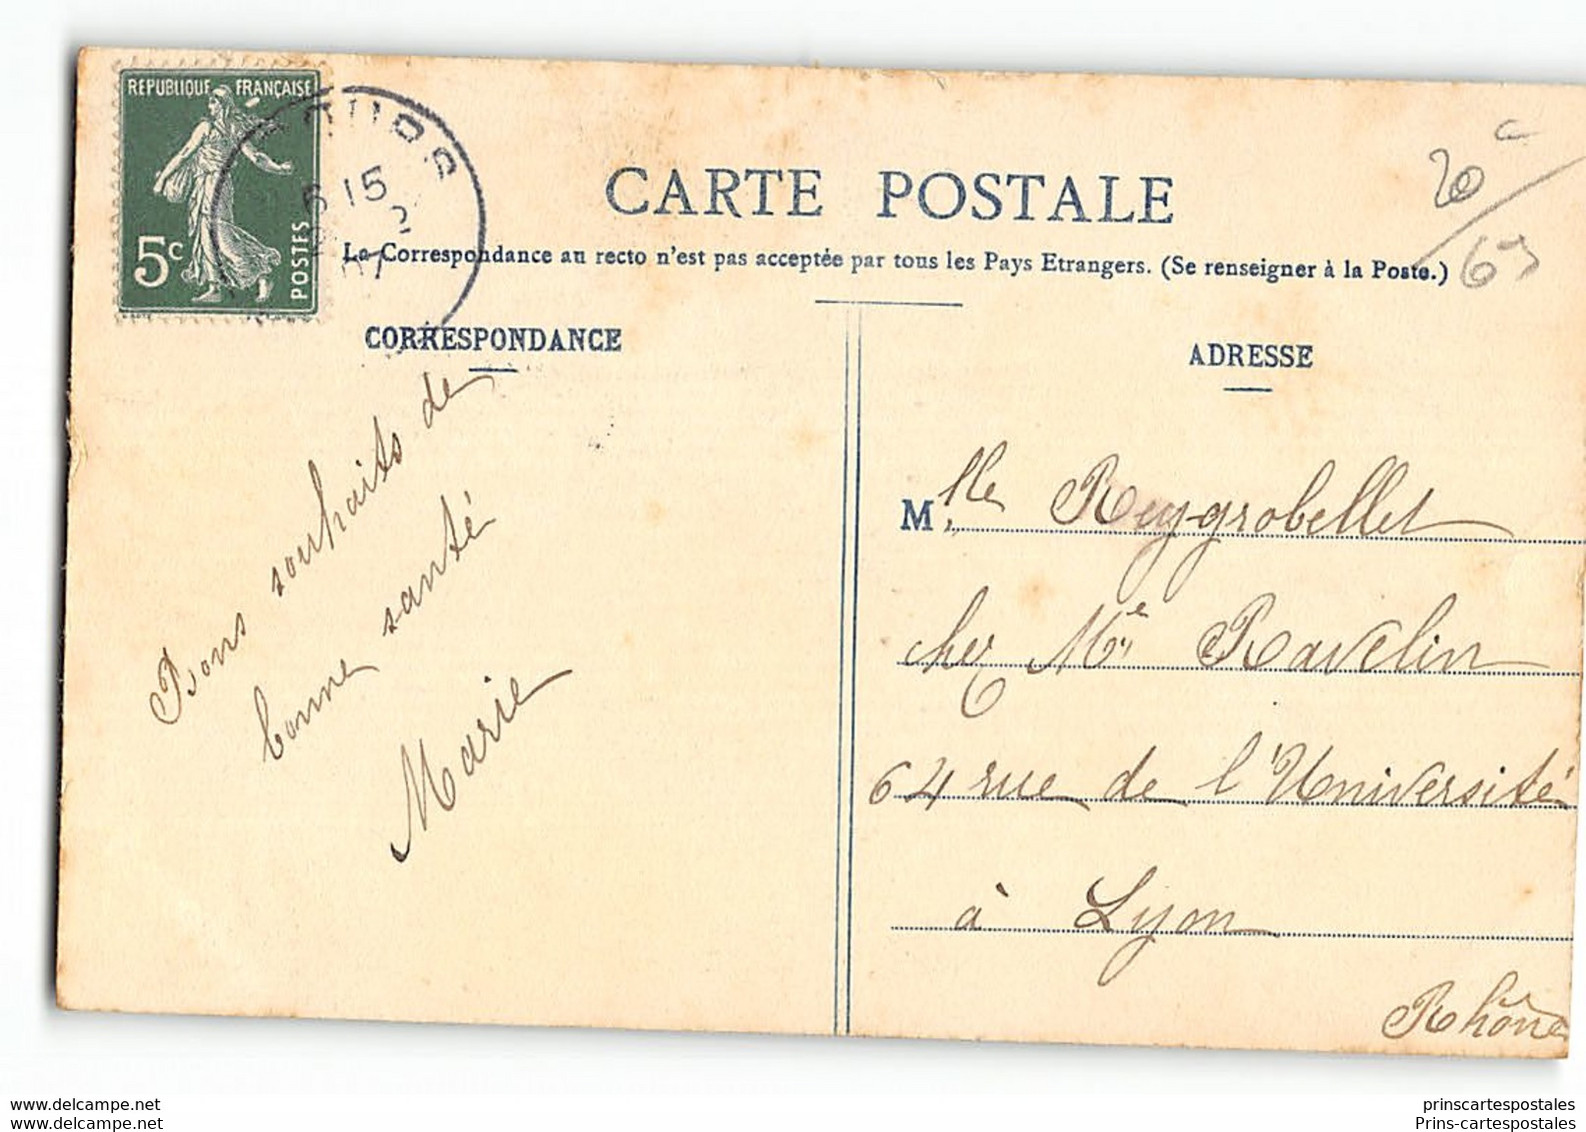 REPUBLIQUE FRANÇAISE
5c
POSTES
6 15
2
07
CARTE POSTALE
La Correspondance au recto n'est pas acceptée par tous les Pays Etrangers. (Se renseigner à la Poste.)
20 c
69
CORRESPONDANCE
Bons souhaits de
bonne santé
Marie
ADRESSE
Mlle Reygrobellet
chez Me Ravelin
64 rue de l'Université
à Lyon
Rhône
www.delcampe.net
www.delcampe.net
prinscartespostales
Prins-cartespostales